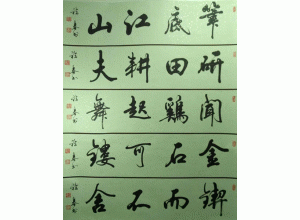 筆底江山
研田耕夫
聞鷄起舞
金石可鏤
鍥而不舍